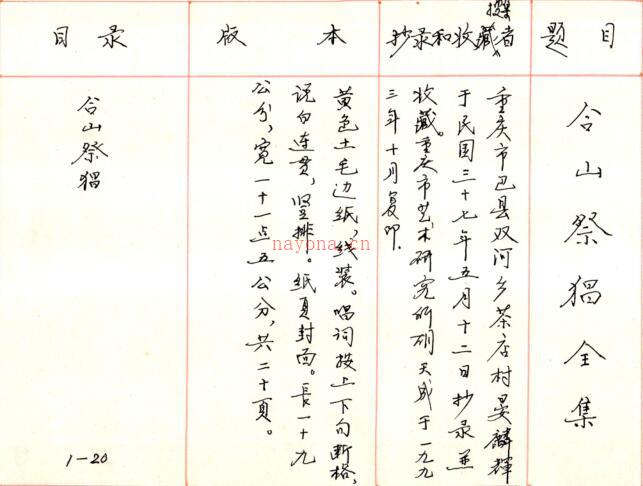 题目
合山祭猖全集
撰者
抄录和收藏
重庆市巴县双河乡茶店村晏麟辉
于民国三十七年五月十二日抄录并
收藏。重庆市艺术研究所胡天成于一九九
三年十月复印.
版本
黄色土毛边纸,线装。唱词按上下句断格,
说白连贯,竖排。纸页封面。長一十九
公分,宽一十一点五公分,共二十頁。
目录
合山祭猖
1-20
nayona.cn